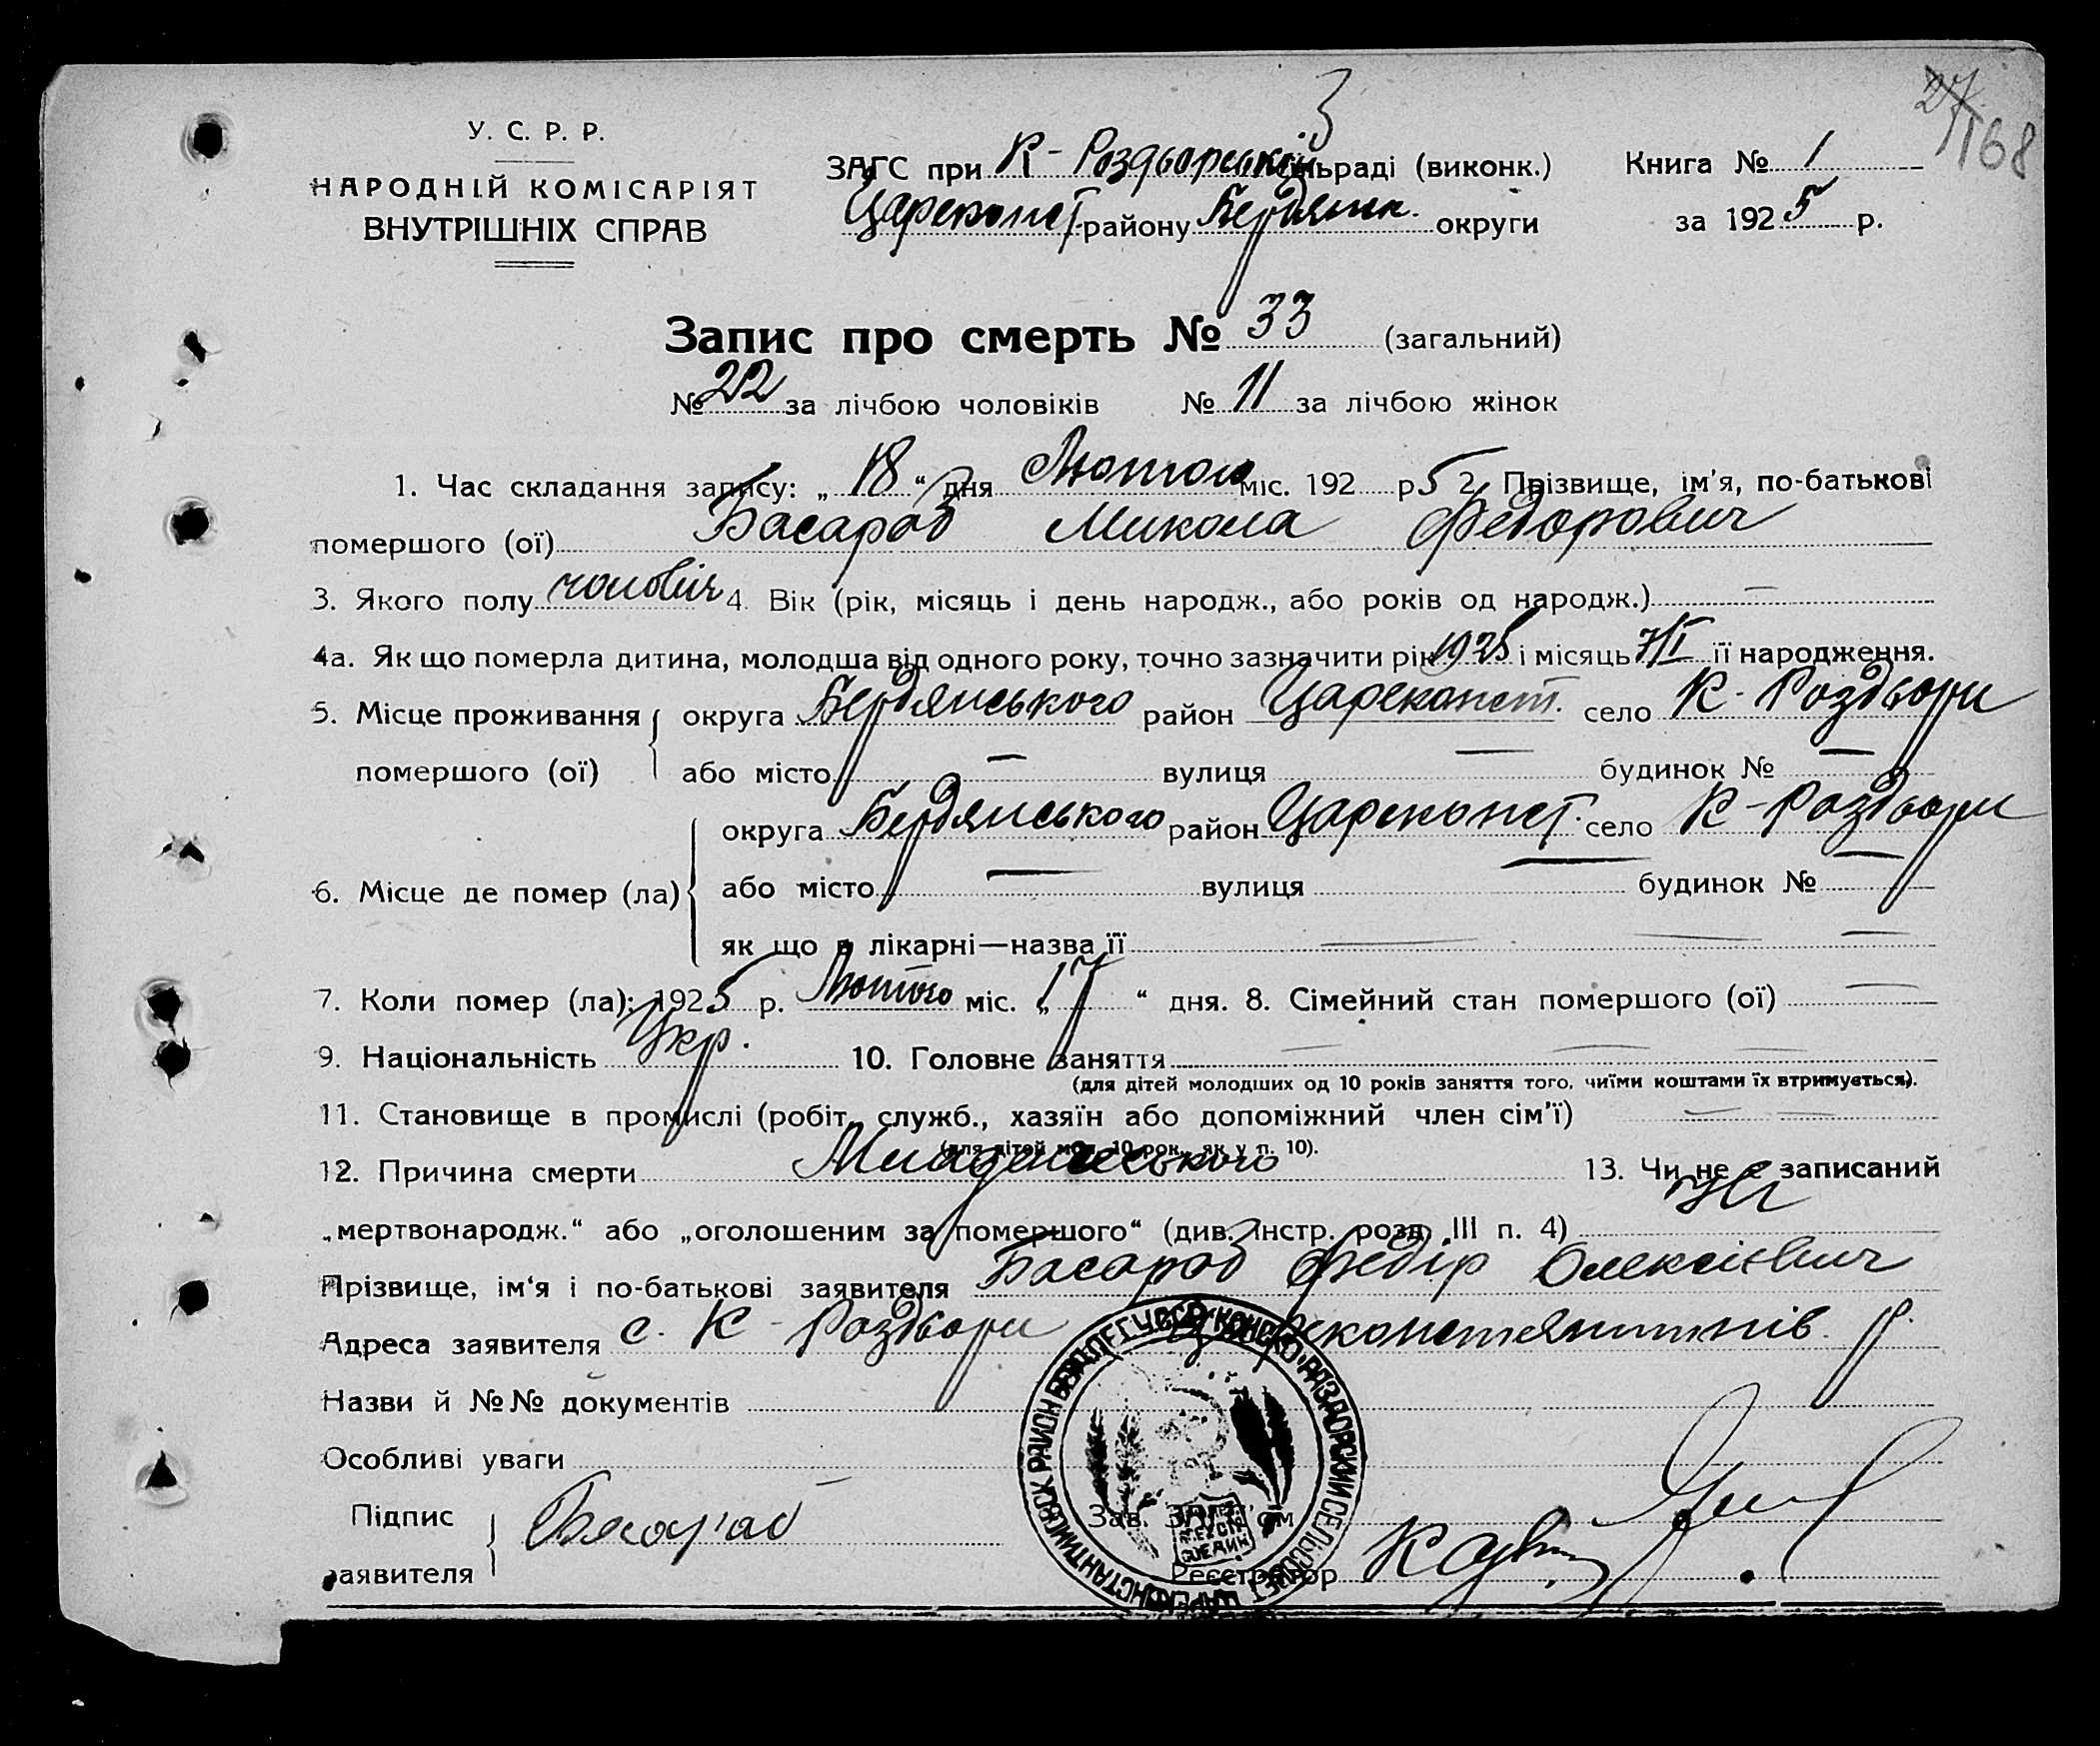 27 168
У. С. Р. Р.
НАРОДНІЙ КОМІСАРІЯТ
ВНУТРІШНІХ СПРАВ
ЗАГС при К-Роздорській сільраді (виконк.) Книга № 1
Цареконст. району Бердянск. округи за 1925 р.
Запис про смерть № 33 (загальний)
№ 22 за лічбою чоловіків № 11 за лічбою жінок
1. Час складання запису: „18“ дня Лютого міс. 192 р 5 2. Прізвище, ім'я, по-батькові
помершого (ої) Басараб Микола Федорович
3. Якого полу чоловіч 4. Вік (рік, місяць і день народж., або років од народж.) —
4а. Як що померла дитина, молодша від одного року, точно зазначити рік 1925 і місяць 7/I її народження.
5. Місце проживання округа Бердянського район Цареконст. село К-Роздори
помершого (ої) або місто — вулиця — будинок № —
округа Бердянського район Цареконст. село К-Роздори
6. Місце де помер (ла) або місто — вулиця — будинок № —
як що в лікарні—назва її — — —
7. Коли помер (ла): 1925 р. Лютого міс. „17“ дня. 8. Сімейний стан помершого (ої) —
9. Національність Укр. 10. Головне заняття — — —
(для дітей молодших од 10 років заняття того, чиїми коштами їх втримується).
11. Становище в промислі (робіт., служб., хазяїн або допоміжний член сім'ї) — —
(для дітей мол. 10 рок., як у п. 10).
12. Причина смерти Младенческого 13. Чи не є записаний
„мертвонародж.“ або „оголошеним за помершого“ (див. Інстр. розд. III п. 4) Ні
Прізвище, ім'я і по-батькові заявителя Басараб Федір Олексієвич
Адреса заявителя с. К-Роздори Цареконстянтинів. р.
Назви й №№ документів
Особливі уваги
Підпис Басараб Зав. ЗАГС'ом
заявителя Реєстратор